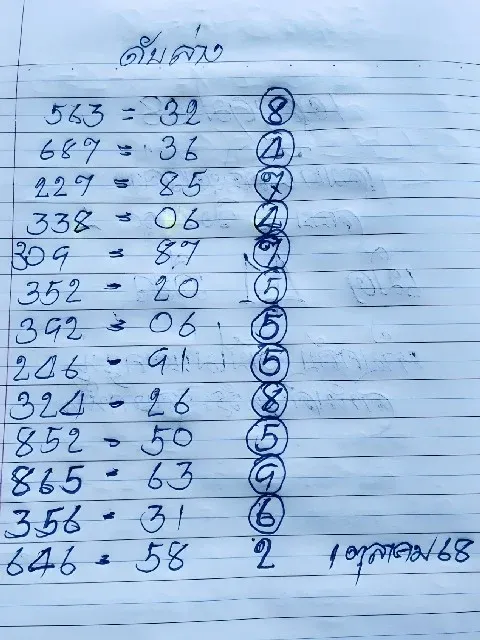 ดับล่าง
563 = 32 8
687 = 36 4
227 = 85 7
338 = 06 4
309 = 87 7
352 = 20 5
392 = 06 5
246 - 91 5
324 - 26 8
852 - 50 5
865 - 63 9
356 - 31 6
646 = 58 2 1 ตุลาคม 68